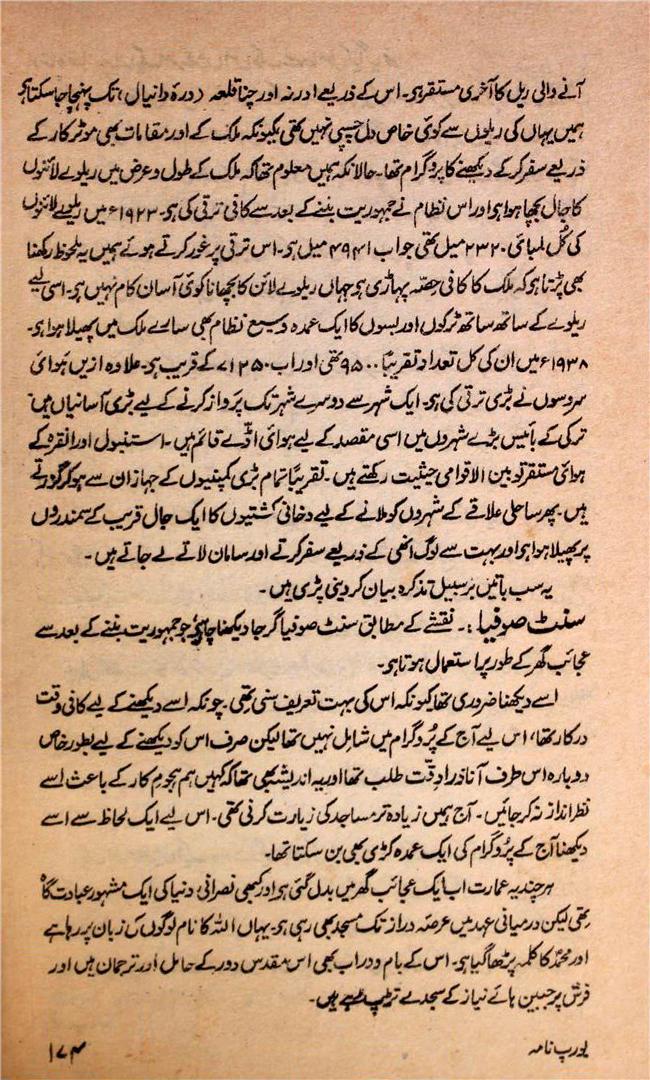 آنے والی ریل کا آخری مستقر ہو۔ اس کے ذریعے ادرنہ اور چنا قلعہ (درۂ دانیال) تک پہنچا جا سکتا ہو
ہمیں یہاں کی ریلوں سے کوئی خاص دل چسپی نہیں تھی کیونکہ ملک کے اور مقامات بھی موٹر کار کے
ذریعے سفر کرکے دیکھنے کا پروگرام تھا۔ حالانکہ ہمیں معلوم تھا کہ ملک کے طول و عرض میں ریلوے لائنوں
کا جال بچھا ہوا ہو اور اس نظام نے جمہوریت بننے کے بعد سے کافی ترقی کی ہو۔ ۱۹۲۳ء میں ریلوے لائنوں
کی کُل لمبائی ۲۳۲۰ میل تھی جو اب ۴۹۴۱ میل ہو۔ اس ترقی پر غور کرتے ہوئے ہمیں یہ ملحوظ رکھنا
بھی پڑتا ہو کہ ملک کا کافی حصّہ پہاڑی ہو جہاں ریلوے لائن کا بچھانا کوئی آسان کام نہیں ہو۔ اسی لیے
ریلوے کے ساتھ ساتھ ٹرکوں اور بسوں کا ایک عمدہ وسیع نظام بھی سارے ملک میں پھیلا ہوا ہو۔
۱۹۳۸ء میں ان کی کل تعداد تقریباً ۹۵۰۰ تھی اور اب ۷۱۲۵۰ کے قریب ہو۔ علاوہ ازیں ہوائی
سروسوں نے بڑی ترقی کی ہو۔ ایک شہر سے دوسرے شہر تک پرواز کرنے کے لیے بڑی آسانیاں ہیں
ترکی کے بائیس بڑے شہروں میں اسی مقصد کے لیے ہوائی اڈّے قائم ہیں۔ استنبول اور انقرہ کے
ہوائی مستقر تو بین الاقوامی حیثیت رکھتے ہیں۔ تقریباً تمام بڑی کمپنیوں کے جہاز ان سے ہو کر گزرتے
ہیں۔ پھر ساحلی علاقے کے شہروں کو ملانے کے لیے دخانی کشتیوں کا ایک جال قریب کے سمندروں
پر پھیلا ہوا ہو اور بہت سے لوگ انھی کے ذریعے سفر کرتے اور سامان لاتے لے جاتے ہیں۔
یہ سب باتیں برسبیل تذکرہ بیان کر دینی پڑی ہیں۔
سنٹ صوفیا :۔ نقشے کے مطابق سنٹ صوفیا گرجا دیکھنا چاہئے جو جمہوریت بننے کے بعد سے
عجائب گھر کے طور پر استعمال ہوتا ہو۔
اسے دیکھنا ضروری تھا کیونکہ اس کی بہت تعریف سنی تھی۔ چونکہ اسے دیکھنے کے لیے کافی وقت
درکار تھا، اس لیے آج کے پروگرام میں شامل نہیں تھا لیکن صرف اس کو دیکھنے کے لیے بطور خاص
دوبارہ اس طرف آنا ذرا دقّت طلب تھا اور یہ اندیشہ بھی تھا کہ کہیں ہم ہجومِ کار کے باعث اسے
نظر انداز نہ کر جائیں۔ آج ہمیں زیادہ تر مساجد کی زیارت کرنی تھی۔ اس لیے ایک لحاظ سے اسے
دیکھنا آج کے پروگرام کی ایک عمدہ کڑی بھی بن سکتا تھا۔
ہر چند یہ عمارت اب ایک عجائب گھر میں بدل گئی ہو اور کبھی نصرانی دنیا کی ایک مشہور عبادت گاہ
تھی لیکن درمیانی عہد میں عرصۂ دراز تک مسجد بھی رہی ہو۔ یہاں اللہ کا نام لوگوں کی زبان پر رہا ہے
اور محمدؐ کا کلمہ پڑھا گیا ہو۔ اس کے بام و در اب بھی اس مقدس دور کے حامل اور ترجمان ہیں اور
فرش پر جبین ہائے نیاز کے سجدے تڑپ رہے ہیں۔
یورپ نامہ
۱۷۴